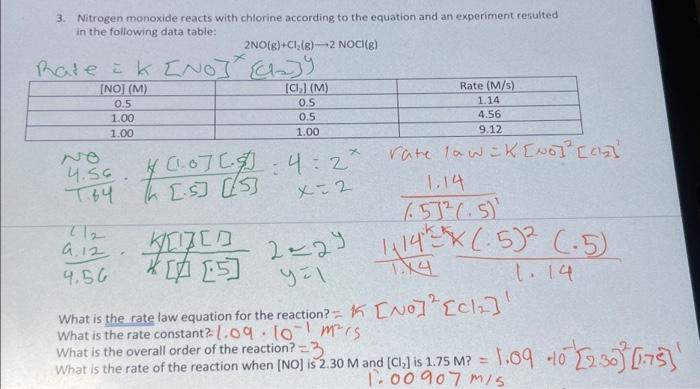 3. Nitrogen monoxide reacts with chlorine according to the equation and an experiment resulted
in the following data table:
2NO(g)+Cl₂(g)⟶2 NOCl(g)
Rate = K [NO]ˣ [Cl₂]ʸ
[NO] (M) [Cl₂] (M) Rate (M/s)
0.5 0.5 1.14
1.00 0.5 4.56
1.00 1.00 9.12
NO rate law = K [NO]² [Cl₂]¹
4.56 K (1.0] [.5] = 4 = 2ˣ 1.14
1.64 K [.5] [.5] x = 2 (.5]² (.5)¹
Cl₂
9.12 K[1][1] 2 = 2ʸ 1.14 = K (.5)² (.5)
4.56 K [1] [.5] y = 1 1.14 1.14
What is the rate law equation for the reaction? = K [NO]² [Cl₂]¹
What is the rate constant? 1.09 · 10⁻¹ m²/s
What is the overall order of the reaction? = 3
What is the rate of the reaction when [NO] is 2.30 M and [Cl₂] is 1.75 M? = 1.09 · 10⁻¹ [2.30]² [1.75]¹
1.00907 m/s